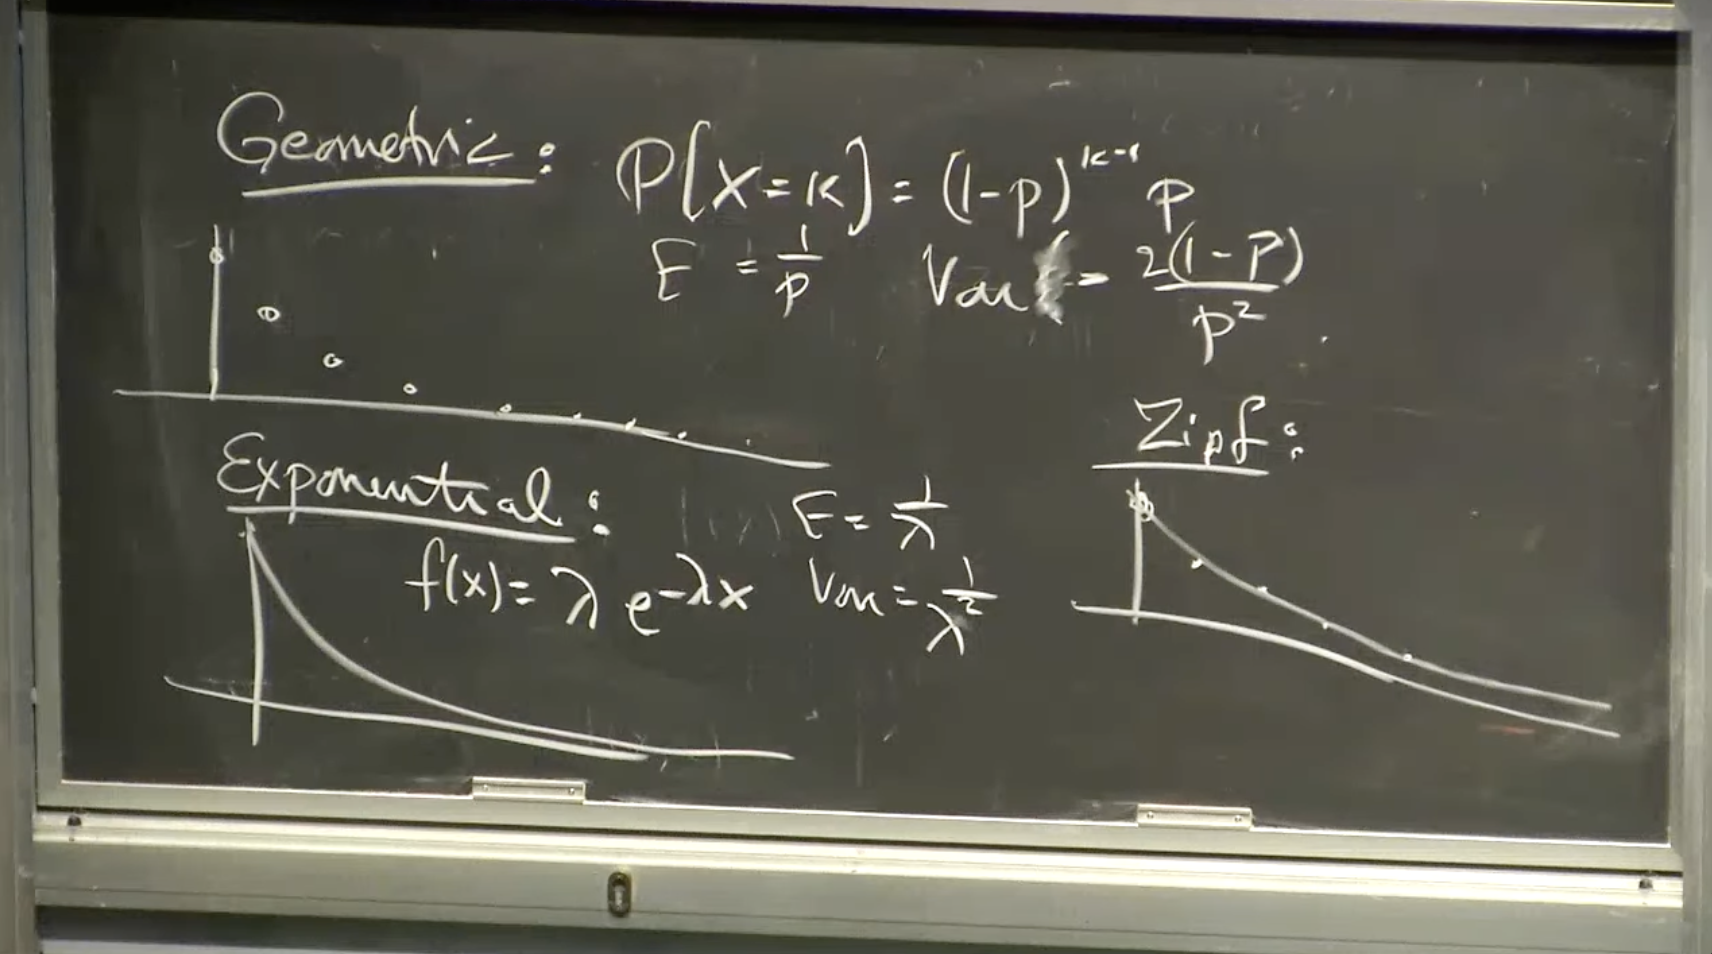 Geometric: P[X=k] = (1-p)^{k-1} p
E = 1/p Var = 2(1-p)/p^2
Zipf:
Exponential: E = 1/λ
f(x) = λ e^{-λx} Var = 1/λ^2